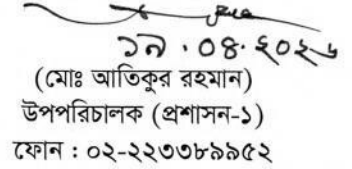 ১৯.০৪.২০২৬
(মোঃ আতিকুর রহমান)
উপপরিচালক (প্রশাসন-১)
ফোন : ০২-২২৩৩৮৯৯৫২